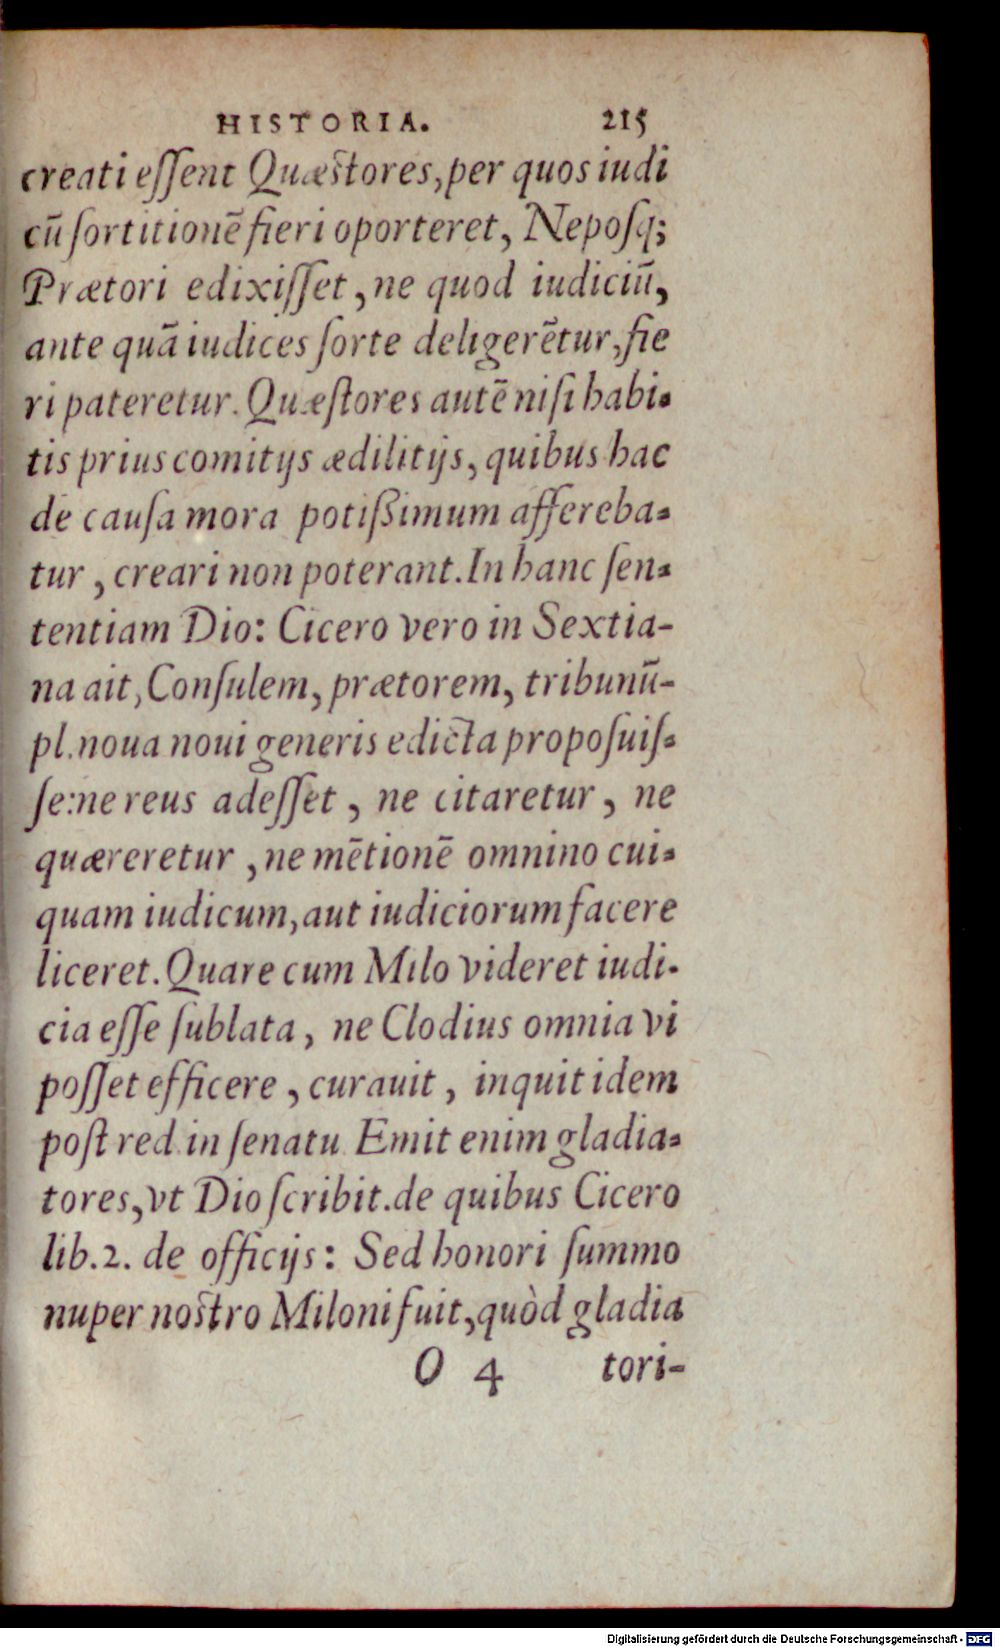 HISTORIA. 215
creati eſſent Quæſtores, per quos iudi
cũ ſortitionẽ fieri oporteret, Nepoſq;
Prætori edixiſſet, ne quod iudiciũ,
ante quã iudices ſorte deligerẽtur, fie
ri pateretur. Quæſtores autẽ niſi habi-
tis prius comitijs ædilitijs, quibus hac
de cauſa mora potißimum affereba-
tur, creari non poterant. In hanc ſen-
tentiam Dio: Cicero vero in Sextia-
na ait, Conſulem, prætorem, tribunũ-
pl. noua noui generis edicta propoſuiſ-
ſe: ne reus adeſſet, ne citaretur, ne
quæreretur, ne mẽtionẽ omnino cui-
quam iudicum, aut iudiciorum facere
liceret. Quare cum Milo videret iudi-
cia eſſe ſublata, ne Clodius omnia vi
poſſet efficere, curauit, inquit idem
poſt red. in ſenatu. Emit enim gladia-
tores, vt Dio ſcribit. de quibus Cicero
lib. 2. de officijs: Sed honori ſummo
nuper noſtro Miloni fuit, quòd gladia
O 4 tori-
Digitalisierung gefördert durch die Deutsche Forschungsgemeinschaft - DFG